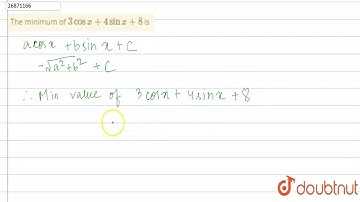 26871166
The minimum of 3 cos x + 4 sin x + 8 is
a cos x + b sin x + C
-√a²+b² + C
∴ Min value of 3 cos x + 4 sin x + 8
doubtnut